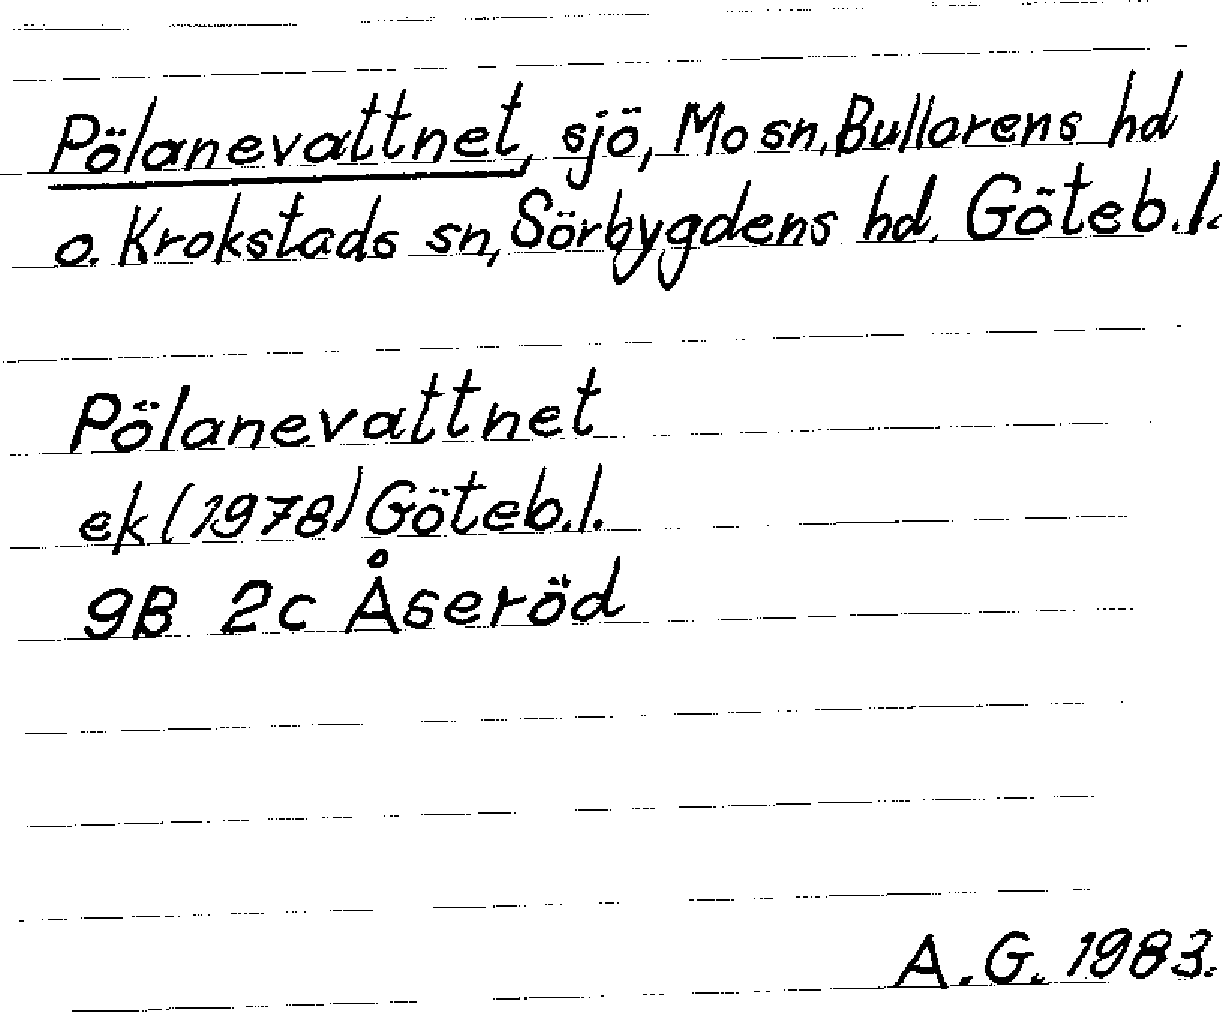 Pölanevattnet, sjö, Mo sn, Bullarens hd
o. Krokstads sn, Sörbygdens hd, Göteb. l.
Pölanevattnet
ek (1978) Göteb. l.
9B 2c Åseröd
A. G. 1983.